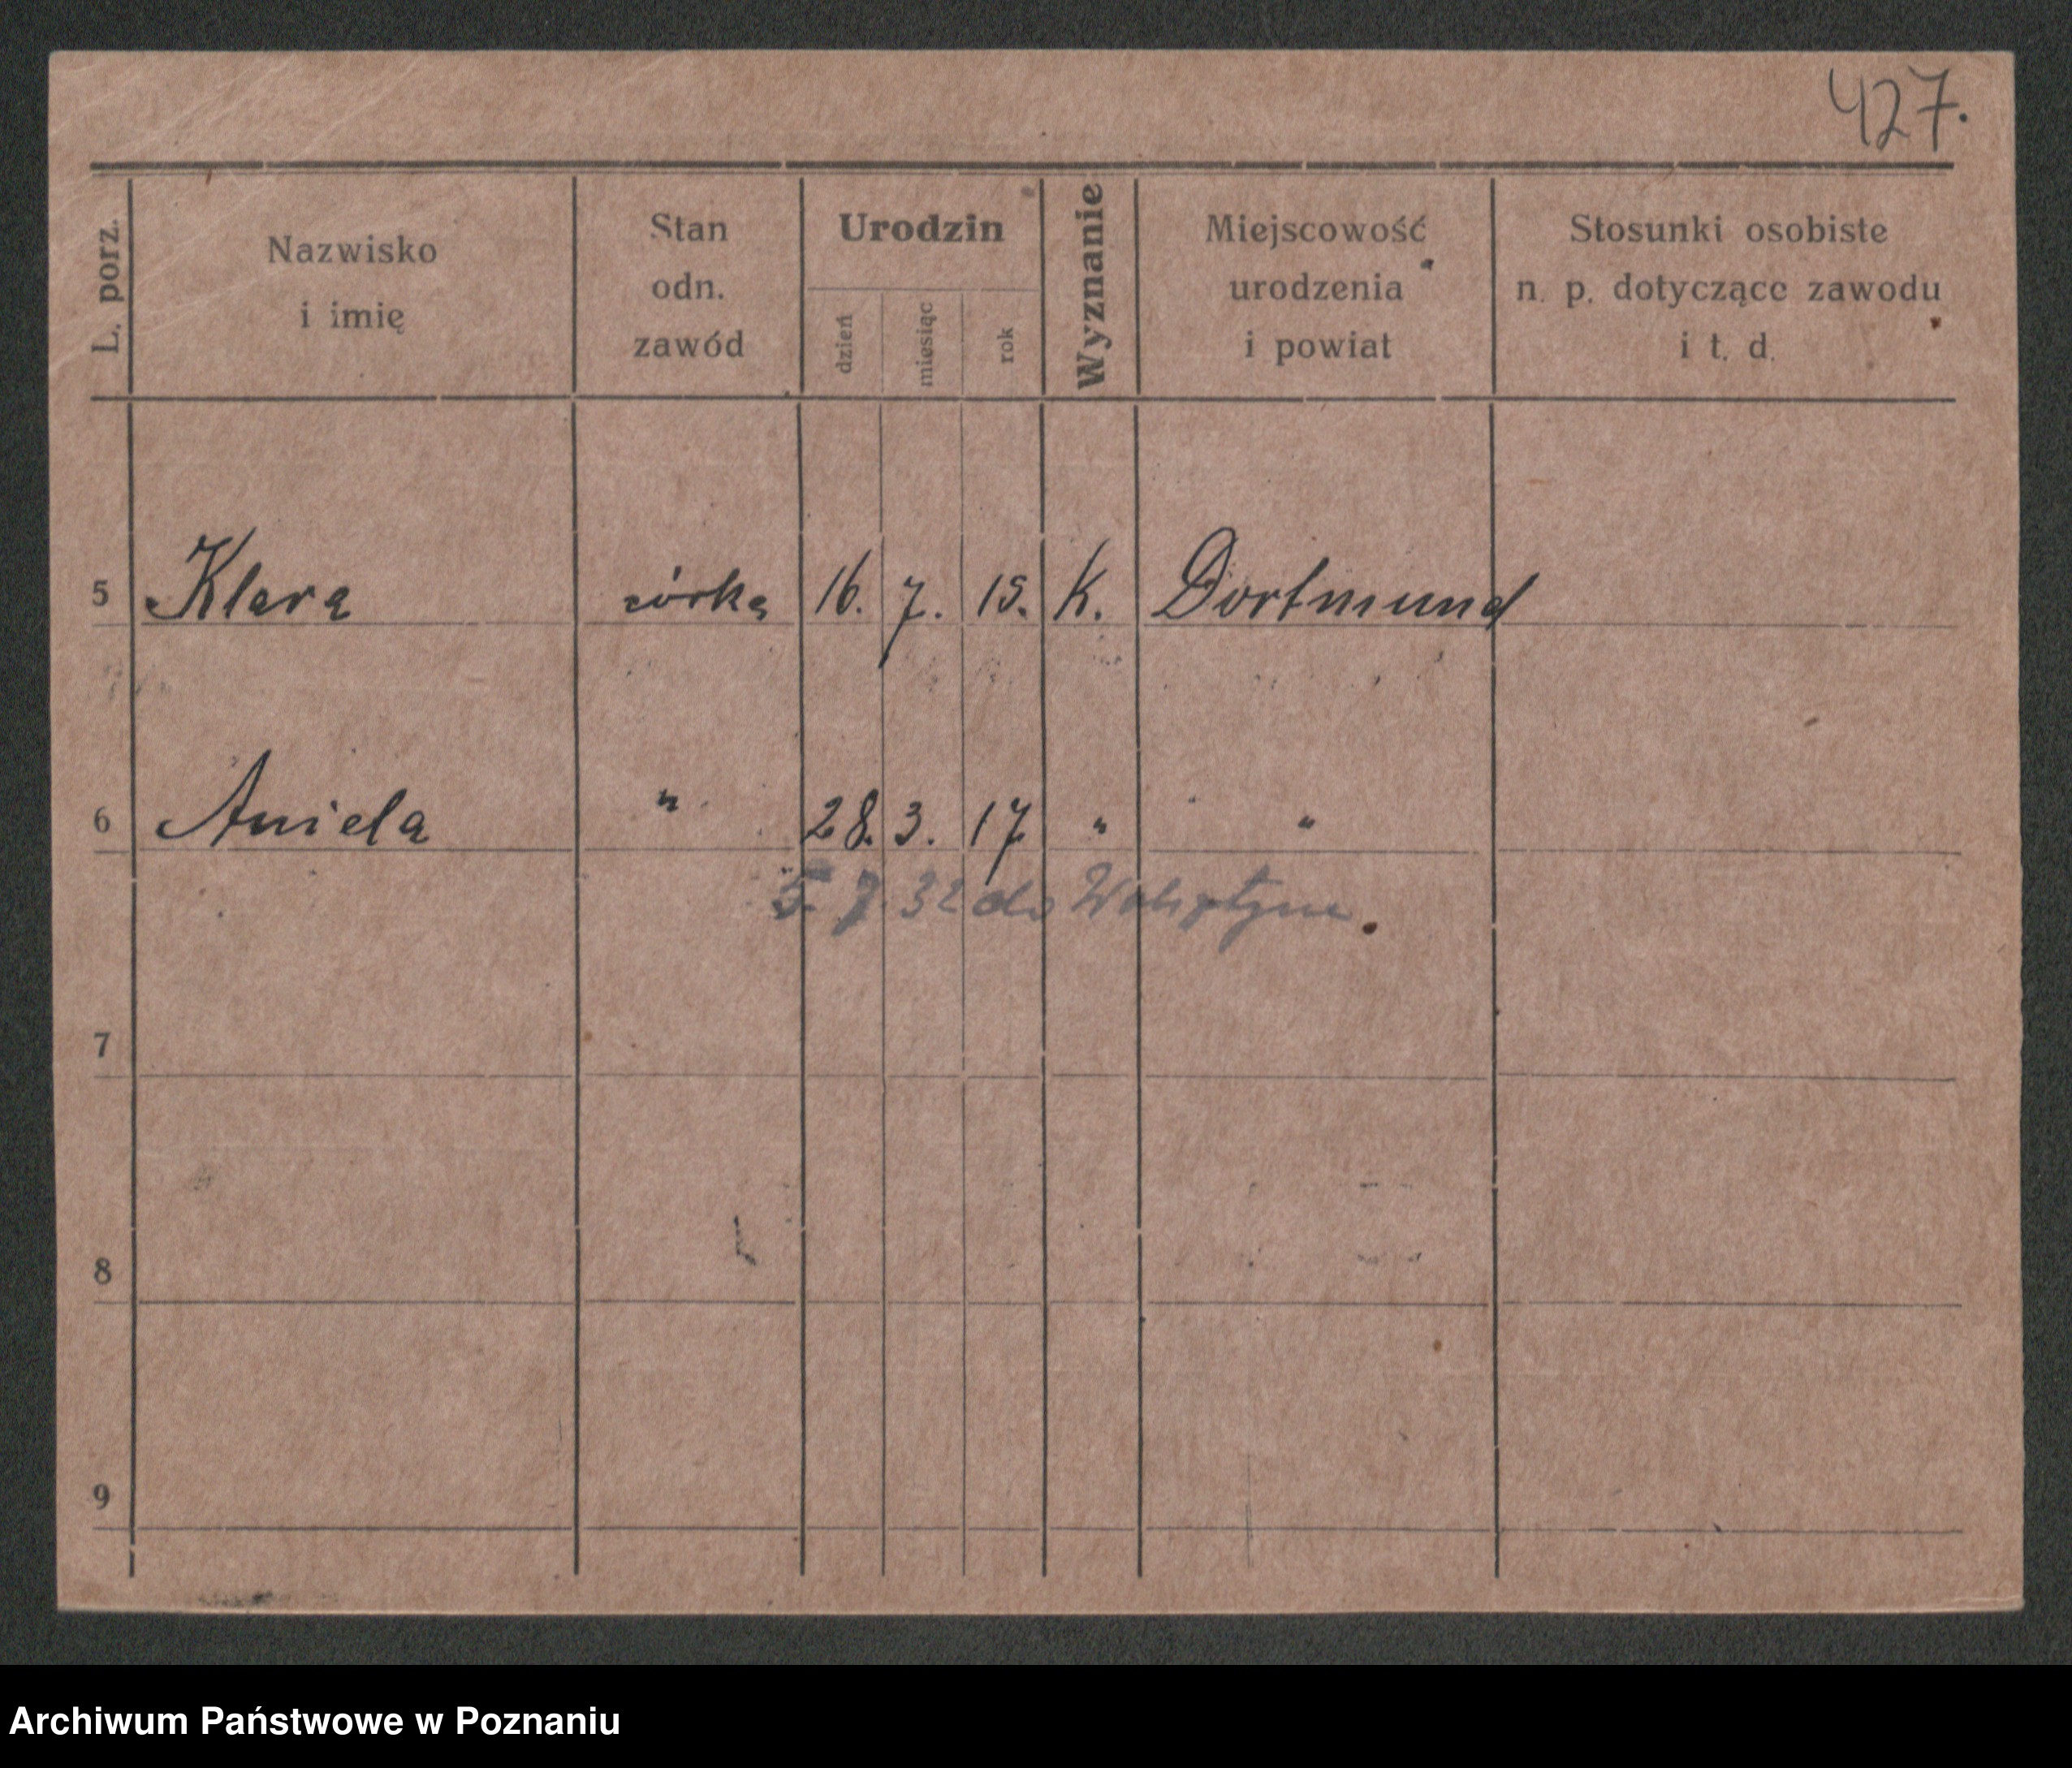 427.
L. porz. Nazwisko i imię Stan odn. zawód Urodzin dzień miesiąc rok Wyznanie Miejscowość urodzenia i powiat Stosunki osobiste n. p. dotyczące zawodu i t. d.
5 Klara córka 16. 7. 15. K. Dortmund
6 Aniela " 28. 3. 17 " "
5. 7. 32 do
7
8
9
Archiwum Państwowe w Poznaniu